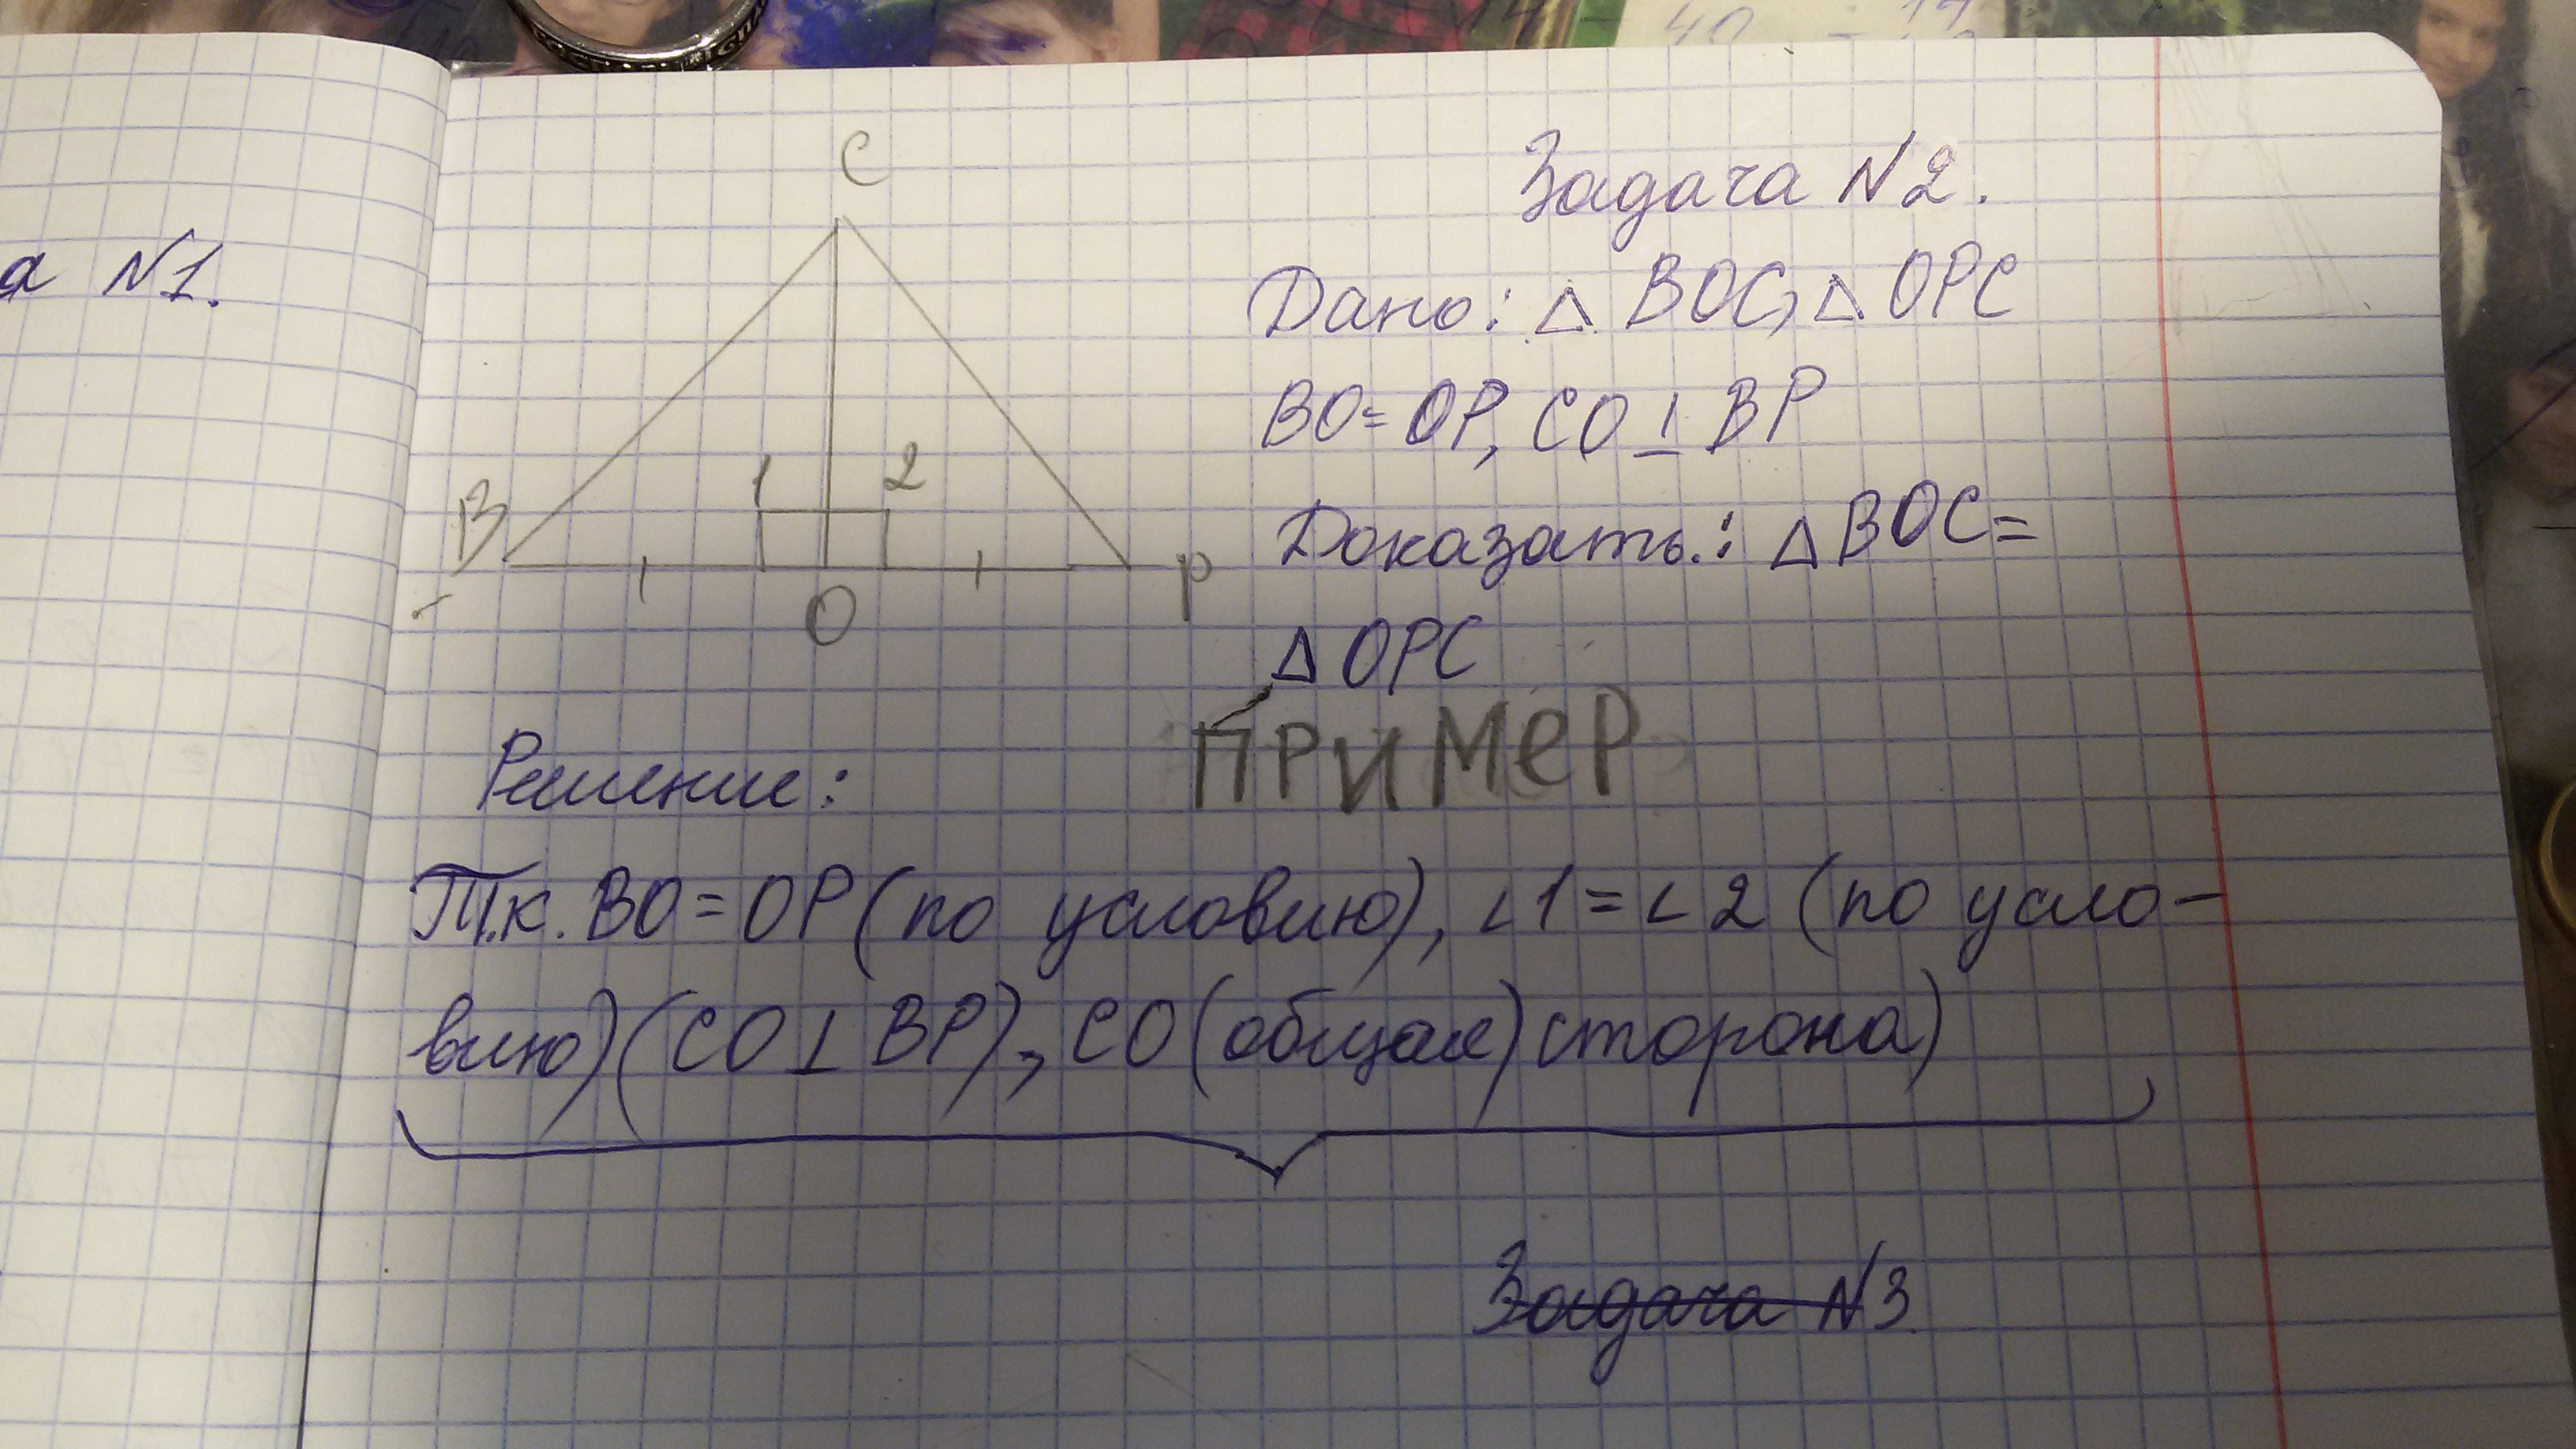 а N1.
C
1
2
B
O
P
Задача N2.
Дано: △ BOC, △ OPC
BO = OP, CO ⊥ BP
Доказать.: △ BOC =
△ OPC
ПРИМЕР
Решение:
Т.к. BO = OP (по условию), ∠1 = ∠2 (по усло-
вию) (CO ⊥ BP), CO (общая) сторона)
Задача N3